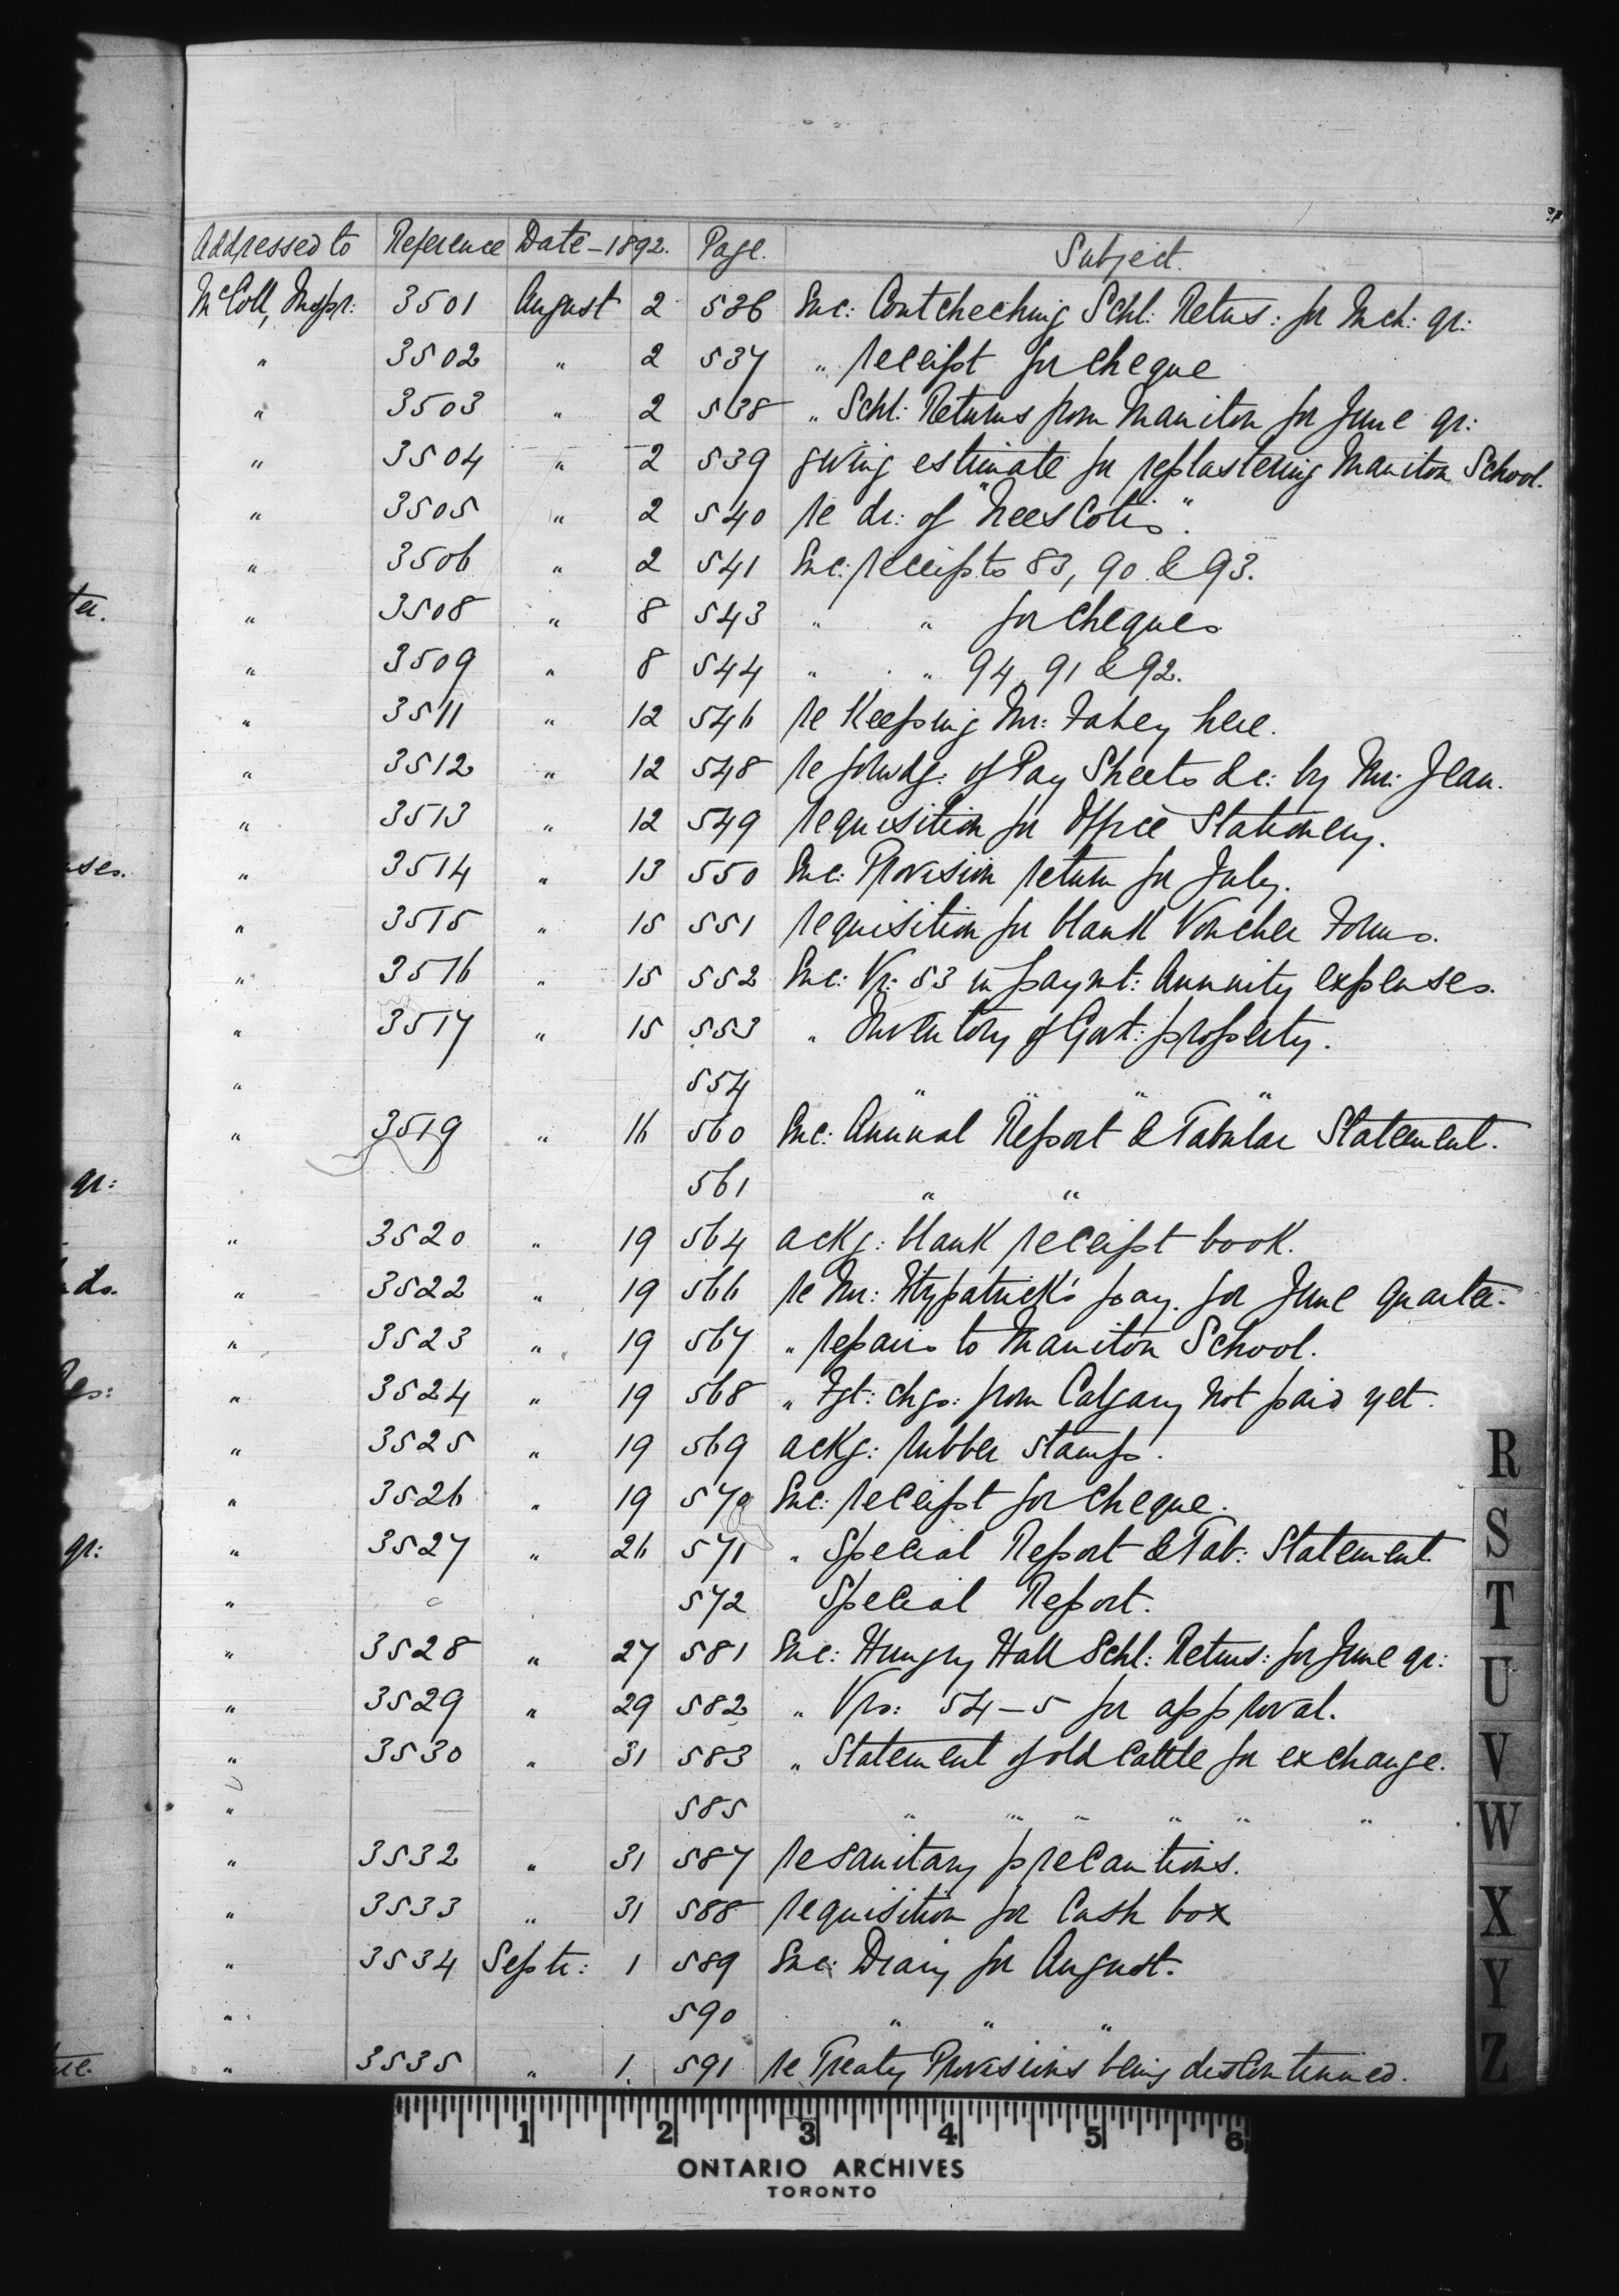 Addressed to Reference Date-1892. Page. Subject.
McColl, Inspr: 3501 August 2 536 Enc: Coutcheching Schl: Retns: for Mch: qr:
" 3502 " 2 537 " receipt for cheque
" 3503 " 2 538 " Schl: Returns from Manitou for June qr:
" 3504 " 2 539 giving estimate for replastering Manitou School.
" 3505 " 2 540 re dr: of "Nees Cotis".
" 3506 " 2 541 Enc: receipts 83, 90 & 93.
" 3508 " 8 543 " " for cheques
" 3509 " 8 544 " " 94, 91 & 92.
" 3511 " 12 546 re Keeping Mr: Fahey here.
" 3512 " 12 548 re forwdg: of Pay Sheets &c: by Mr: Jean.
" 3513 " 12 549 requisition for Office Stationery.
" 3514 " 13 550 Enc: Provision return for July.
" 3515 " 15 551 requisition for blank Voucher Forms.
" 3516 " 15 552 Enc: Vr: 53 in paymt: Annuity expenses.
" 3517 " 15 553 " Inventory of Govt: property.
" 554 " " " "
" 3519 " 16 560 Enc: Annual Report & Tabular Statement.
561 " "
" 3520 " 19 564 ackg: blank receipt book.
" 3522 " 19 566 re Mr: Fitzpatrick's pay. for June quarter.
" 3523 " 19 567 " repairs to Manitou School.
" 3524 " 19 568 " Fgt: chgs: from Calgary not paid yet.
" 3525 " 19 569 ackg: rubber stamps.
" 3526 " 19 570 Enc: receipt for cheque.
" 3527 " 26 571 " Special Report & Tab: Statement.
" 572 Special Report.
" 3528 " 27 581 Enc: Hungry Hall Schl: Retns: for June qr:
" 3529 " 29 582 " Vrs: 54-5 for approval.
" 3530 " 31 583 " Statement of old Cattle for exchange.
" 585 " " " " " "
" 3532 " 31 587 re sanitary precautions.
" 3533 " 31 588 requisition for Cash box
" 3534 Septr: 1 589 Enc: Diary for August.
" 590 " " "
" 3535 " 1. 591 re Treaty Provisions being discontinued.
ter.
qr:
qr:
R
S
T
U
V
W
X
Y
Z
1 2 3 4 5 6
ONTARIO ARCHIVES
TORONTO